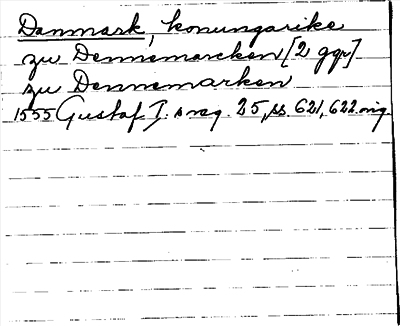 Danmark, konungarike
zu Dennemarcken [2 ggr]
zu Dennemarken
1555 Gustaf I. s reg. 25, ss. 621, 622. orig.